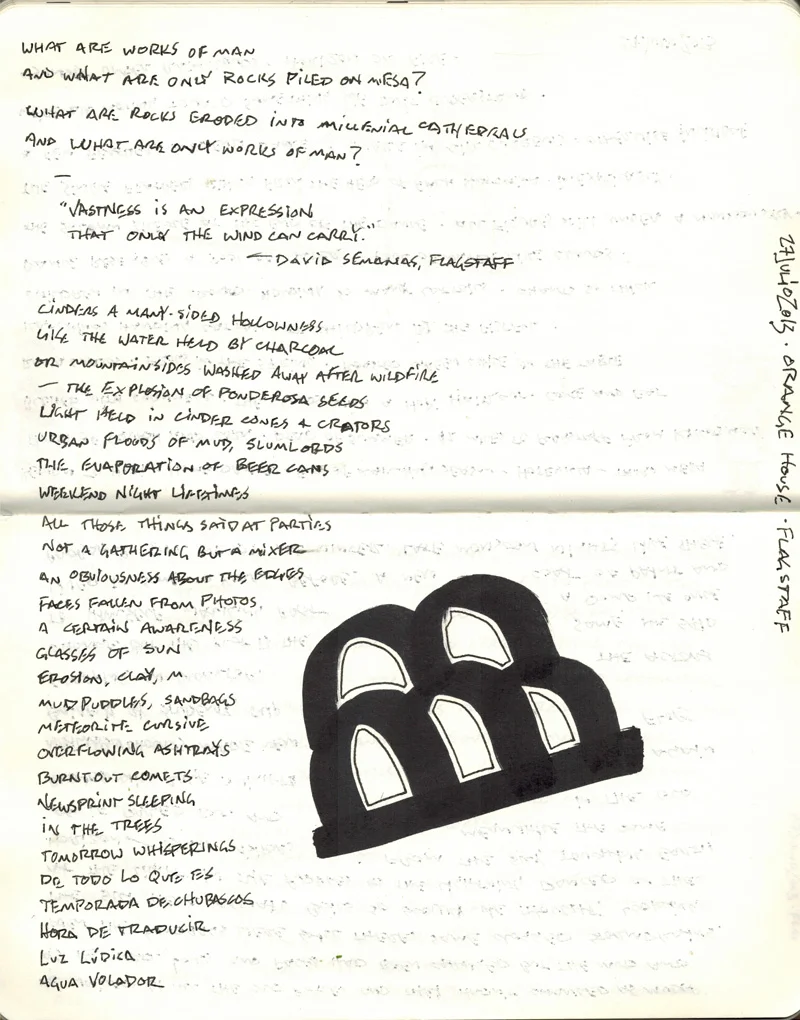 WHAT ARE WORKS OF MAN
AND WHAT ARE ONLY ROCKS PILED ON MESA?
WHAT ARE ROCKS ERODED INTO MILLENIAL CATHEDRALS
AND WHAT ARE ONLY WORKS OF MAN?
—
"VASTNESS IS AN EXPRESSION
THAT ONLY THE WIND CAN CARRY."
— DAVID SEMONAS, FLAGSTAFF
CINDERS A MANY-SIDED HOLLOWNESS
LIKE THE WATER HELD BY CHARCOAL
OR MOUNTAINSIDES WASHED AWAY AFTER WILDFIRE
— THE EXPLOSION OF PONDEROSA SEEDS
LIGHT HELD IN CINDER CONES & CRATORS
URBAN FLOODS OF MUD, SLUMLORDS
THE EVAPORATION OF BEER CANS
WEEKEND NIGHT LIFETIMES
ALL THOSE THINGS SAID AT PARTIES
NOT A GATHERING BUT A MIXER
AN OBVIOUSNESS ABOUT THE EDGES
FACES FALLEN FROM PHOTOS
A CERTAIN AWARENESS
GLASSES OF SUN
EROSION, CLAY, M
MUD PUDDLES, SANDBAGS
METEORITE CURSIVE
OVERFLOWING ASHTRAYS
BURNT OUT COMETS
NEWSPRINT SLEEPING
IN THE TREES
TOMORROW WHISPERINGS
DE TODO LO QUE ES
TEMPORADA DE CHUBASCOS
HORA DE TRADUCIR
LUZ LÚDICA
AGUA VOLADOR
27 JULIO 2013 · ORANGE HOUSE · FLAGSTAFF